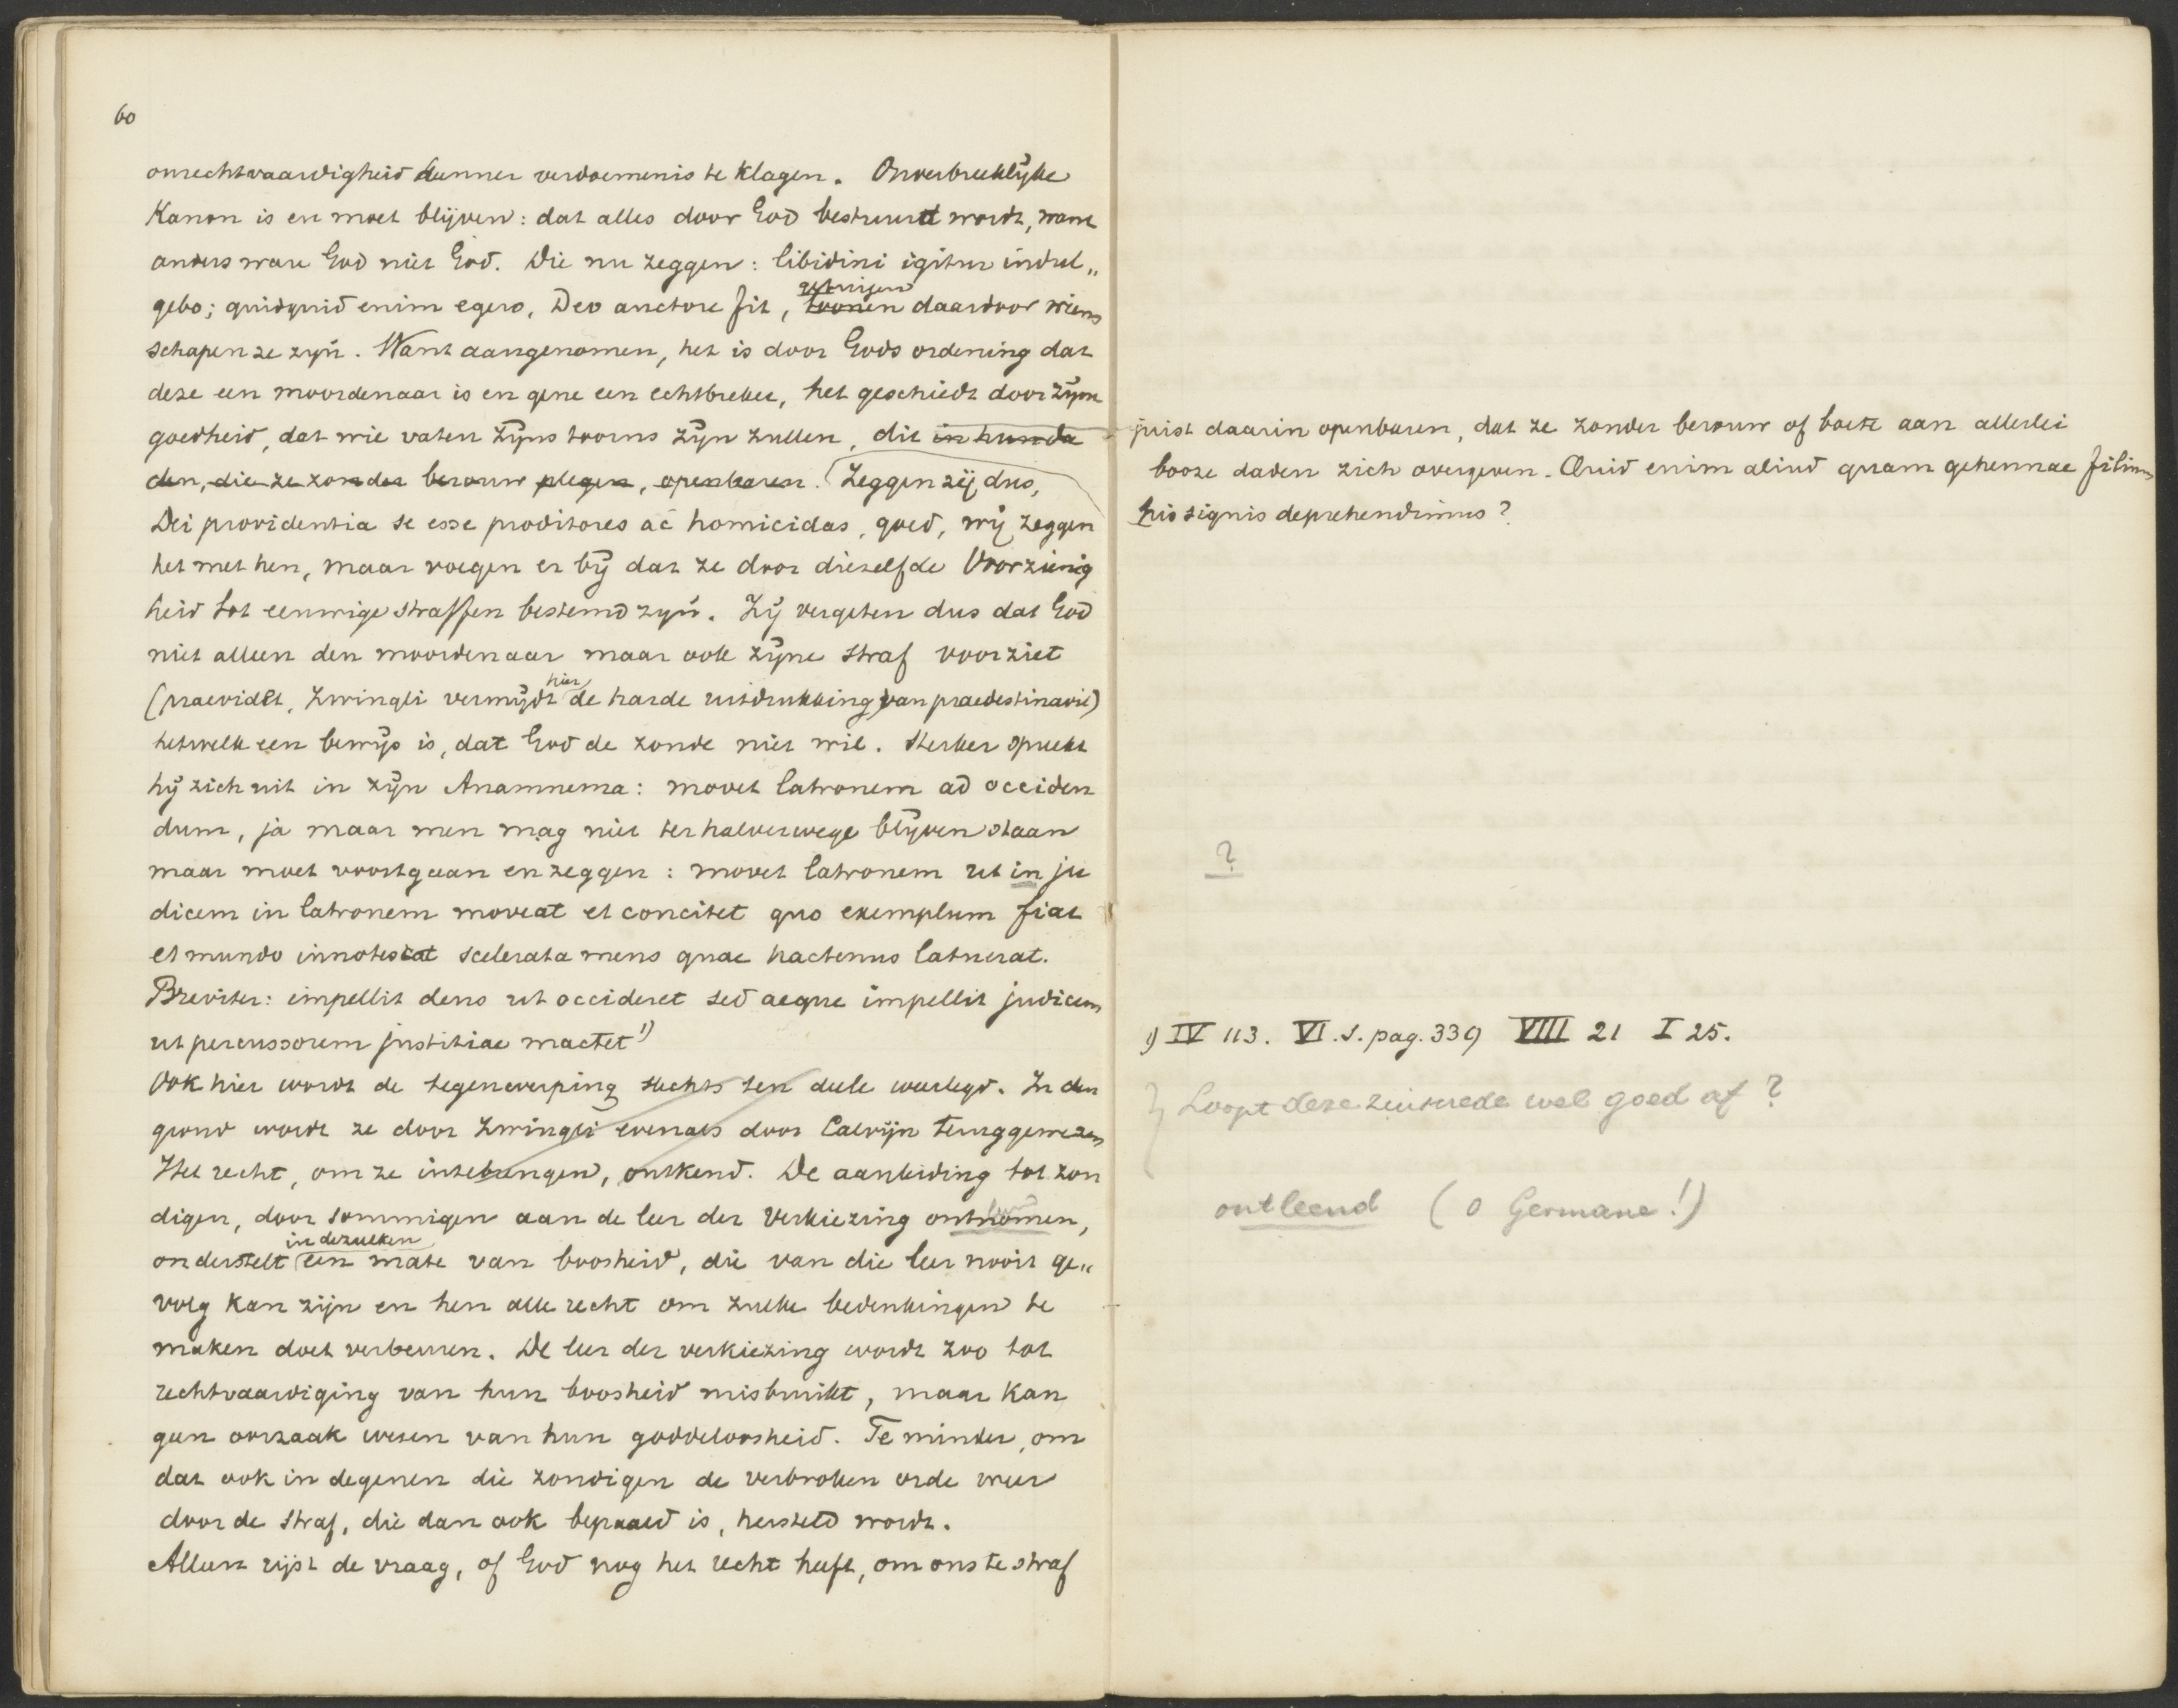 60
onrechtvaardigheid hunner verdoemenis te klagen. Onverbreeklijke
Kanon is en moet blijven: dat alles door God bestuurd wordt, want
anders ware God niet God. Die nu zeggen: libidini igitur indul„
gebo; quidquid enim egero, Deo auctore fit, toonen daardoor wiens
getuigen
schapen ze zijn. Want aangenomen, het is door Gods ordening dat
deze een moordenaar is en gene een echtbreker, het geschiedt door zijne
goedheid, dat wie vaten zijns toorns zijn zullen, dit in hunne da
den, die ze zonder berouw plegen, openbaren. Zeggen zij dus,
Dei providentia se esse proditores ac homicidas, goed, wij zeggen
het met hen, maar voegen er bij dat ze door diezelfde Voorzienig
heid tot eeuwige straffen bestemd zijn. Zij vergeten dus dat God
niet alleen den moordenaar maar ook zijne straf voorziet
(praevidet, Zwingli vermijdt hier de harde uitdrukking van praedestinavit)
hetwelk een bewijs is, dat God de zonde niet wil. Sterker spreekt
hij zich uit in zijn Anamnema: movet latronem ad occiden
dum, ja maar men mag niet ter halverwege blijven staan
maar moet voortgaan en zeggen: movet latronem ut in ju
dicem in latronem moveat et concitet quo exemplum fiat
et mundo innotescat scelerata mens quae hactenus latuerat.
Breviter: impellit deus ut occideret sed aeque impellit judicem
ut percussorem justitiae mactet 1)
Ook hier wordt de tegenwerping slechts ten deele weerlegd. In den
grond wordt ze door Zwingli evenals door Calvijn teruggewezen
Het recht, om ze intebrengen, ontkend. De aanleiding tot zon
digen, door sommigen aan de leer der Verkiezing ontnomen,
onderstelt in dezulken een mate van boosheid, die van die leer nooit ge„
volg kan zijn en hen alle recht om zulke bedenkingen te
maken doet verbeuren. De leer der verkiezing wordt zoo tot
rechtvaardiging van hun boosheid misbruikt, maar kan
geen oorzaak wezen van hun goddeloosheid. Te minder, om
dat ook in degenen die zondigen de verbroken orde weer
door de straf, die dan ook bepaald is, hersteld wordt.
Alleen rijst de vraag, of God nog het recht heeft, om ons te straf
juist daarin openbaren, dat ze zonder berouw of boete aan allerlei
booze daden zich overgeven. Quid enim aliud quam gehennae filium
his signis deprehendimus?
?
1) IV 113. VI. S. pag. 339 VIII 21 I 25.
Loopt deze zinsnede wel goed af?
ontleend (o Germane!)